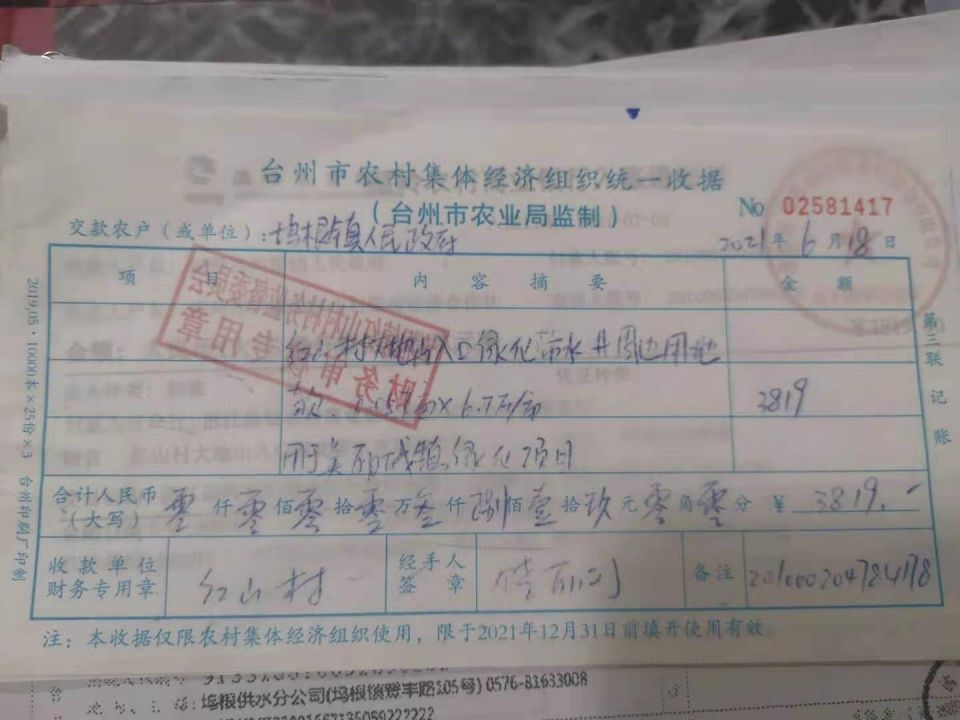 台州市农村集体经济组织统一收据
（台州市农业局监制）
No 02581417
交款农户（或单位）：坞根镇人民政府
2021年6月18日
项 目 内 容 摘 要 金 额
红山村大地山入口绿化带水井周边用地
款 亩×6.7万/亩 3819
用于美丽城镇绿化项目
合计人民币（大写） 零仟零佰零拾零万叁仟捌佰壹拾玖元零角零分 ￥3819.-
收款单位财务专用章 红山村 经手人签章 备注 201000204784178
注：本收据仅限农村集体经济组织使用，限于2021年12月31日前填开使用有效。
第三联 记账
2019.05·10000本×25份×3 台州印刷厂印制
财务审 专用章
坞根供水分公司(坞根镇登丰路105号) 0576-81633008